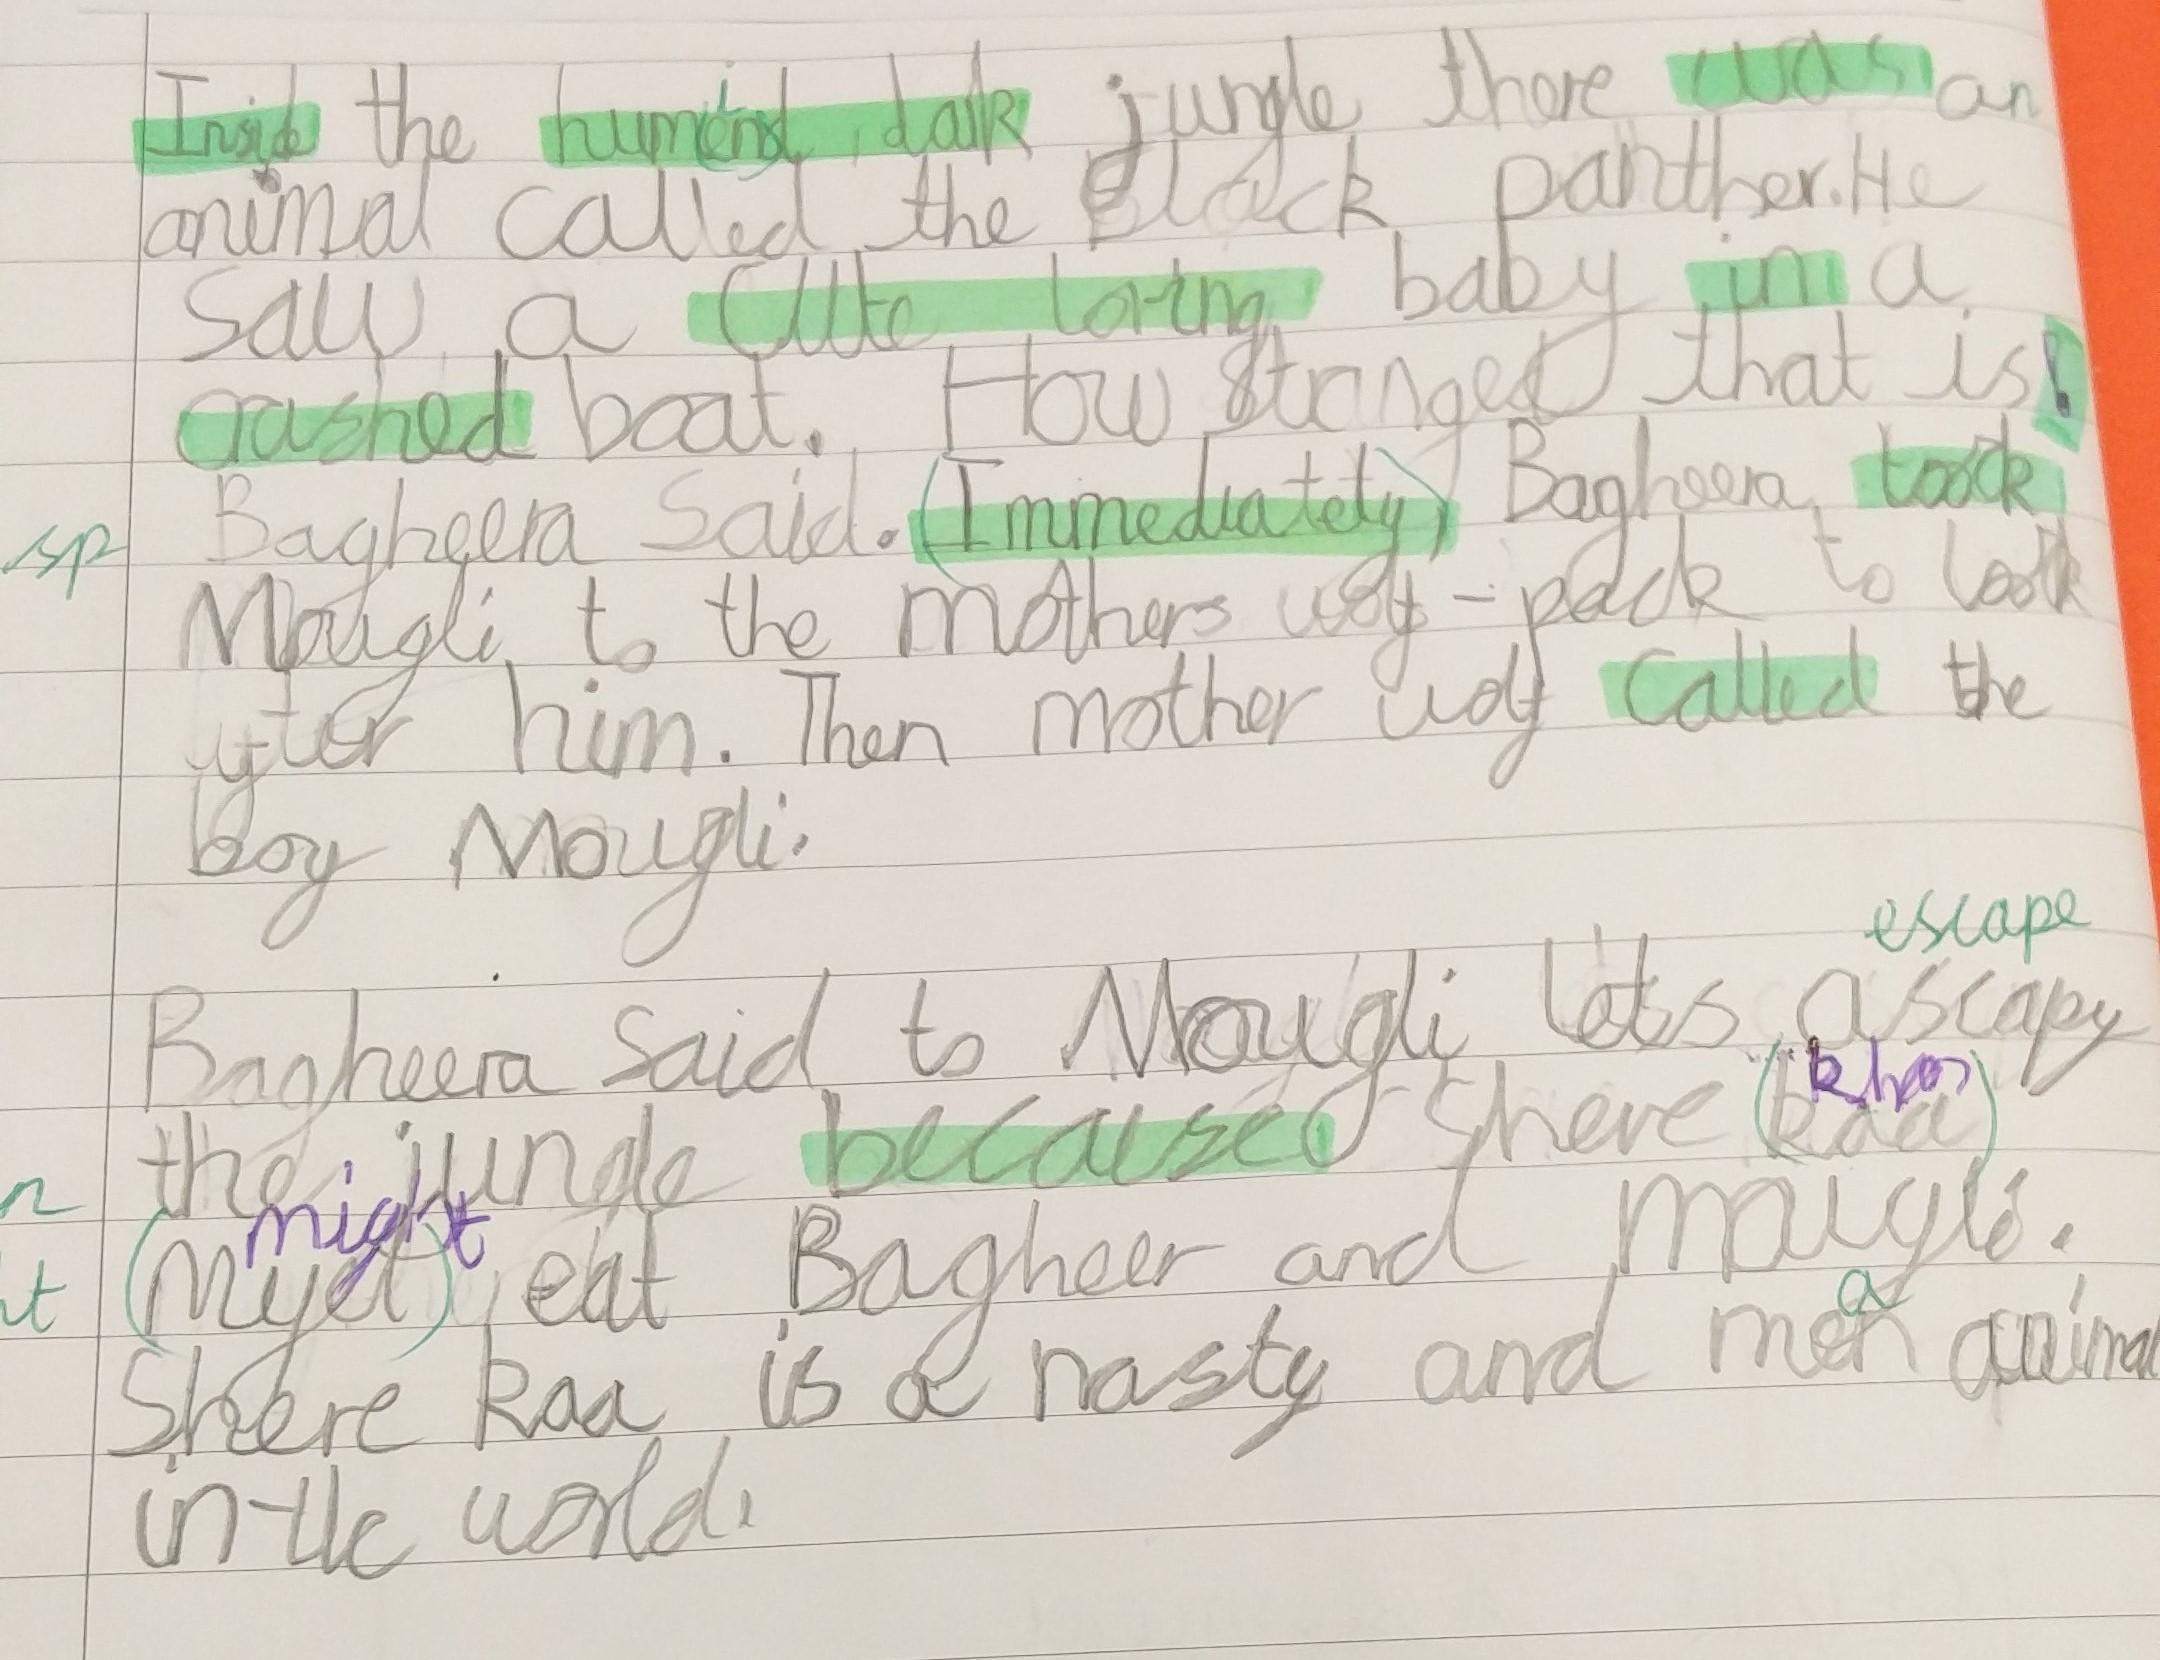 Inside the humid, dark jungle there was an
animal called the Black panther. He
saw a cute loving baby in a
crashed boat. How stranged that is!
sp Bagheera said. (Immediately) Bagheera took
Mougli to the mothers wolf-pack to look
after him. Then mother wolf called the
boy Mougli.
escape
Bagheera said to Mougli lets ascapy
khan
the jungle because Shere (kaa)
n might
t (Myet) eat Bagheer and mougli.
a
Sheere kaa is a nasty and men animal
in the world.